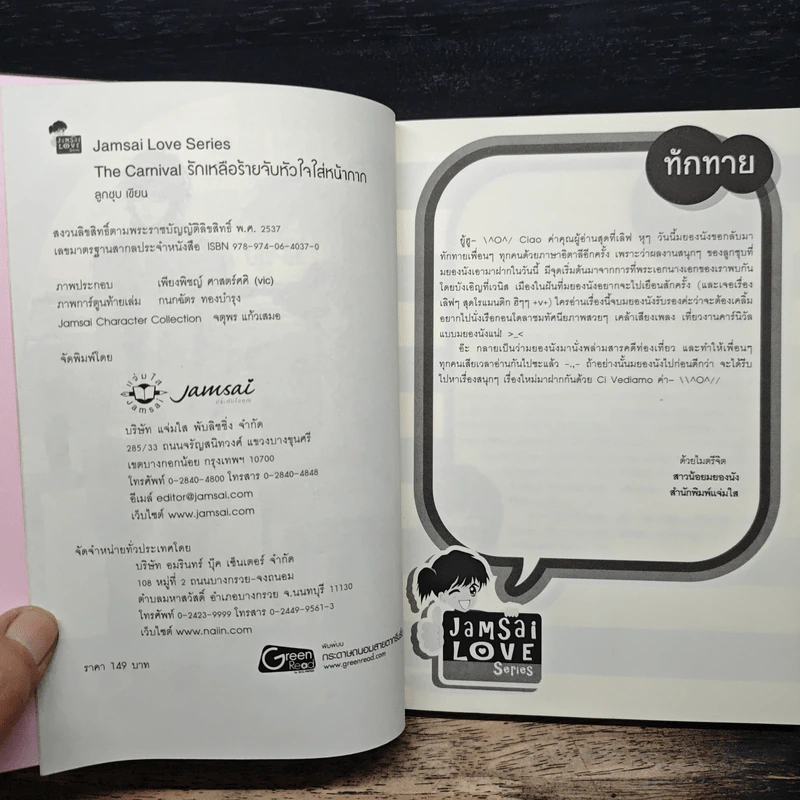 Jamsai Love Series
The Carnival รักเหลือร้ายจับหัวใจใส่หน้ากาก
ลูกชุบ เขียน
สงวนลิขสิทธิ์ตามพระราชบัญญัติลิขสิทธิ์ พ.ศ. 2537
เลขมาตรฐานสากลประจำหนังสือ ISBN 978-974-06-4037-0
ภาพประกอบ เพียงพิชญ์ ศาสตร์ศศิ (vic)
ภาพการ์ตูนท้ายเล่ม กนกฉัตร ทองบำรุง
Jamsai Character Collection จตุพร แก้วเสมอ
จัดพิมพ์โดย
แจ่มใส
Jamsai
Jamsai
บริษัท แจ่มใส พับลิชชิ่ง จำกัด
285/33 ถนนจรัญสนิทวงศ์ แขวงบางขุนศรี
เขตบางกอกน้อย กรุงเทพฯ 10700
โทรศัพท์ 0-2840-4800 โทรสาร 0-2840-4848
อีเมล์ editor@jamsai.com
เว็บไซต์ www.jamsai.com
จัดจำหน่ายทั่วประเทศโดย
บริษัท อมรินทร์ บุ๊ค เซ็นเตอร์ จำกัด
108 หมู่ที่ 2 ถนนบางกรวย-จงถนอม
ตำบลมหาสวัสดิ์ อำเภอบางกรวย จ.นนทบุรี 11130
โทรศัพท์ 0-2423-9999 โทรสาร 0-2449-9561-3
เว็บไซต์ www.naiin.com
ราคา 149 บาท
Green Read
พิมพ์บน
กระดาษถนอมสายตากรีนรี้ด
www.greenread.com
ทักทาย
ยู้ฮู~ \^O^// Ciao ค่าคุณผู้อ่านสุดที่เลิฟ หุๆ วันนี้มยองนังขอกลับมา
ทักทายเพื่อนๆ ทุกคนด้วยภาษาอิตาลีอีกครั้ง เพราะว่าผลงานสนุกๆ ของลูกชุบที่
มยองนังเอามาฝากในวันนี้ มีจุดเริ่มต้นมาจากการที่พระเอกนางเอกของเราพบกัน
โดยบังเอิญที่เวนิส เมืองในฝันที่มยองนังอยากจะไปเยือนสักครั้ง (และเจอเรื่อง
เลิฟๆ สุดโรแมนติก ฮิๆๆ +v+) ใครอ่านเรื่องนี้จบมยองนังรับรองค่ะว่าจะต้องเคลิ้ม
อยากไปนั่งเรือกอนโดลาชมทัศนียภาพสวยๆ เคล้าเสียงเพลง เที่ยวงานคาร์นิวัล
แบบมยองนังแน่! >_<
อ๊ะ กลายเป็นว่ามยองนังมานั่งพล่ามสารคดีท่องเที่ยว และทำให้เพื่อนๆ
ทุกคนเสียเวลาอ่านกันไปซะแล้ว -.,- ถ้าอย่างนั้นมยองนังไปก่อนดีกว่า จะได้รีบ
ไปหาเรื่องสนุกๆ เรื่องใหม่มาฝากกันด้วย Ci Vediamo ค่า~ \\^O^//
ด้วยไมตรีจิต
สาวน้อยมยองนัง
สำนักพิมพ์แจ่มใส
Jamsai
LOVE
Series